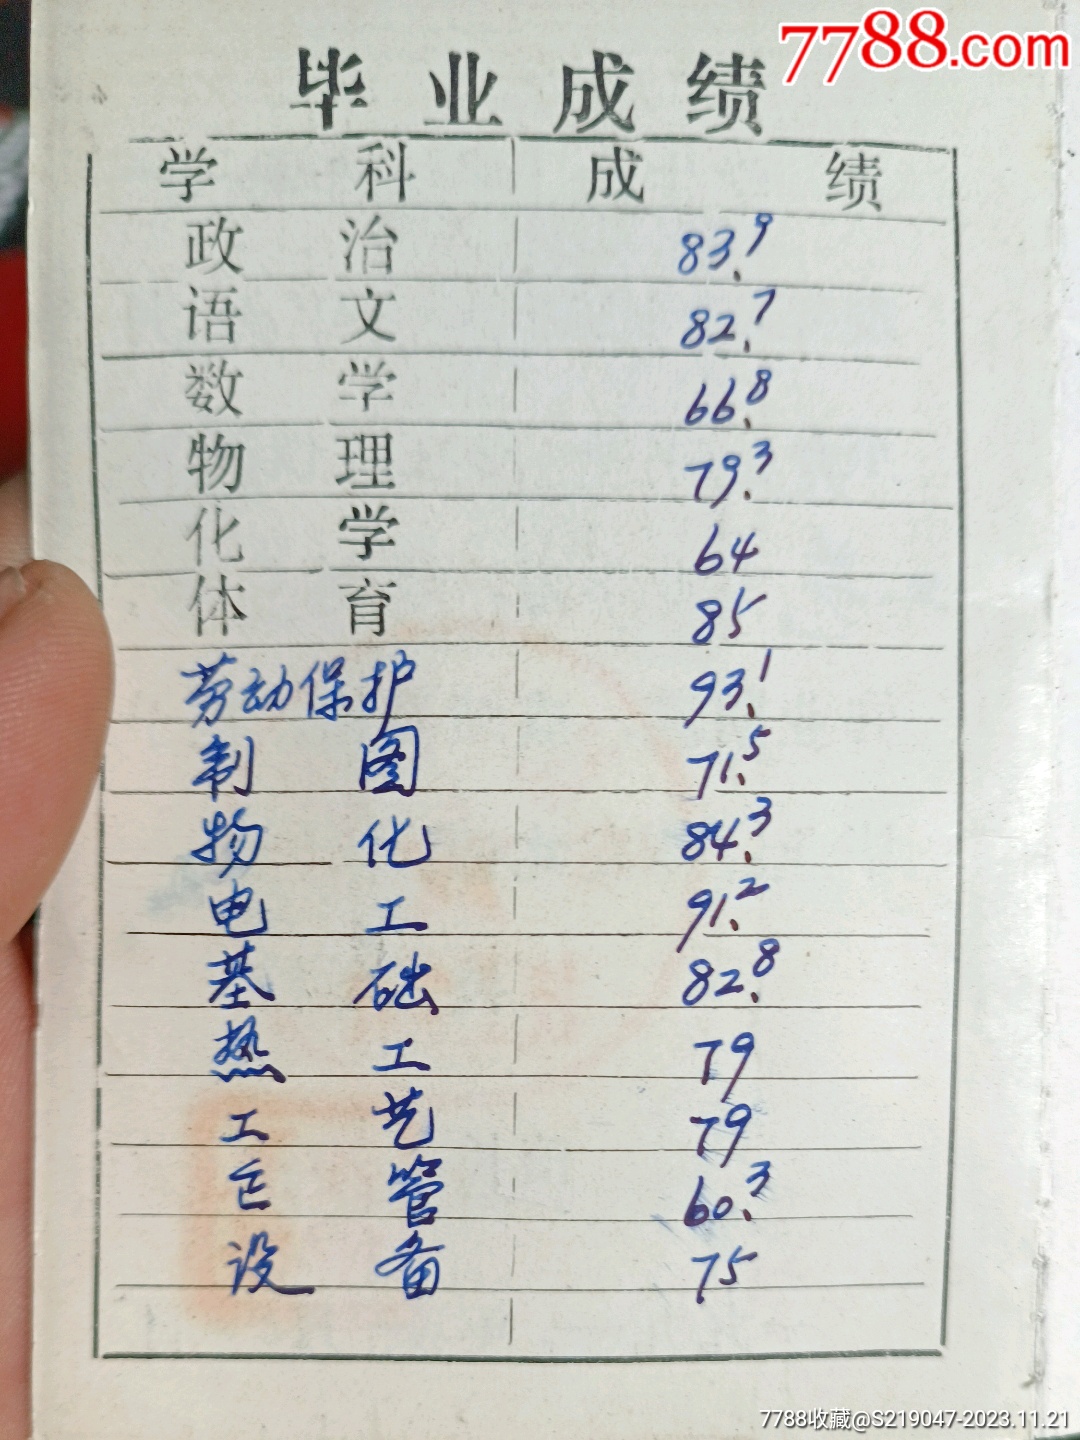 7788.com
毕业成绩
学科 成绩
政治 83.9
语文 82.7
数学 66.8
物理 79.3
化学 64
体育 85
劳动保护 93.1
制图 71.5
物化 84.3
电工 91.2
基础 82.8
热工 79
工艺 79
管 60.3
设备 75
7788收藏@S219047-2023.11.21